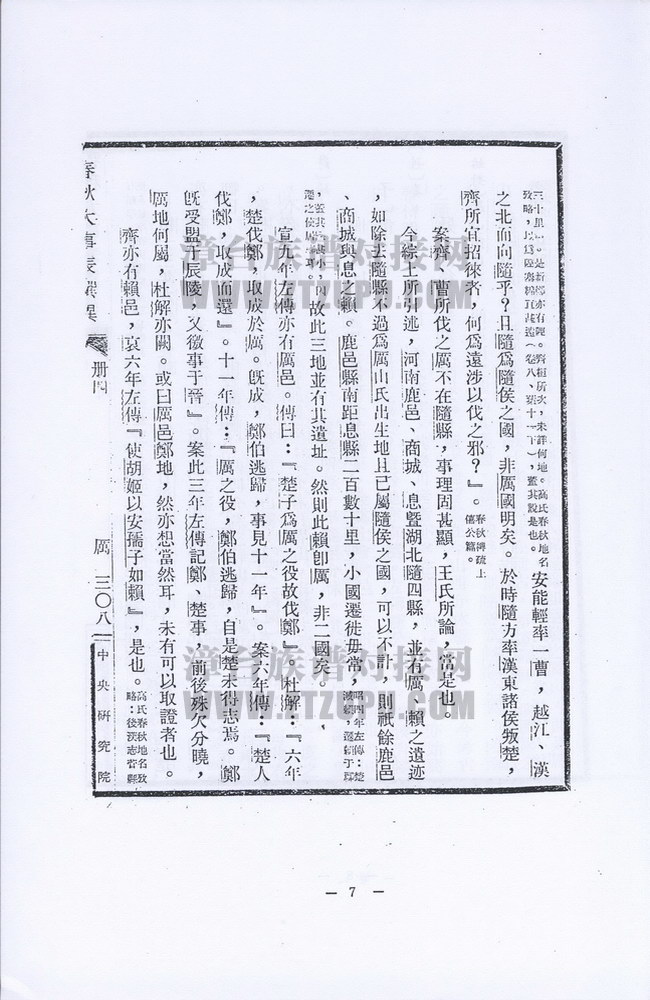 安能輕率一曹，越江、漢
之北而向隨乎？且隨爲隨侯之國，非厲國明矣。於時隨方率漢東諸侯叛楚，
齊所宜招徠者，何爲遠涉以伐之邪？』。春秋稗疏上僖公篇。
案齊、曹所伐之厲不在隨縣，事理固甚顯，王氏所論，當是也。
今綜上所引述，河南鹿邑、商城、息暨湖北隨四縣，並有厲、賴之遺迹
，如除去隨縣不過爲厲山氏出生地且已屬隨侯之國，可以不計，則祇餘鹿邑
、商城與息之賴。鹿邑縣南距息縣二百數十里，小國遷徙毋常，昭四年左傳：楚滅賴，遷賴于鄢
故此三地並有其遺址。然則此賴卽厲，非二國矣。
宣九年左傳亦有厲邑。傳曰：『楚子爲厲之役故伐鄭』。杜解：『六年
，楚伐鄭，取成於厲。旣成，鄭伯逃歸，事見十一年』。案六年傳：『楚人
伐鄭，取成而還』。十一年傳：『厲之役，鄭伯逃歸，自是楚未得志焉。鄭
旣受盟于辰陵，又徼事于晉』。案此三年左傳記鄭、楚事，前後殊欠分曉，
厲地何屬，杜解亦闕。或曰厲邑鄭地，然亦想當然耳，未有可以取證者也。
齊亦有賴邑，哀六年左傳『使胡姬以安孺子如賴』，是也。高氏春秋地名攷略：後漢志菅縣
春秋大事表譔異 册四 厲 三〇八 中央研究院
— 7 —
漳台族谱对接网
WWW.ZTZUPU.COM
漳台族谱对接网
WWW.ZTZUPU.COM